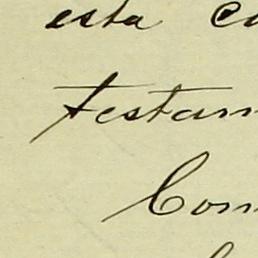 esta
testam
Com